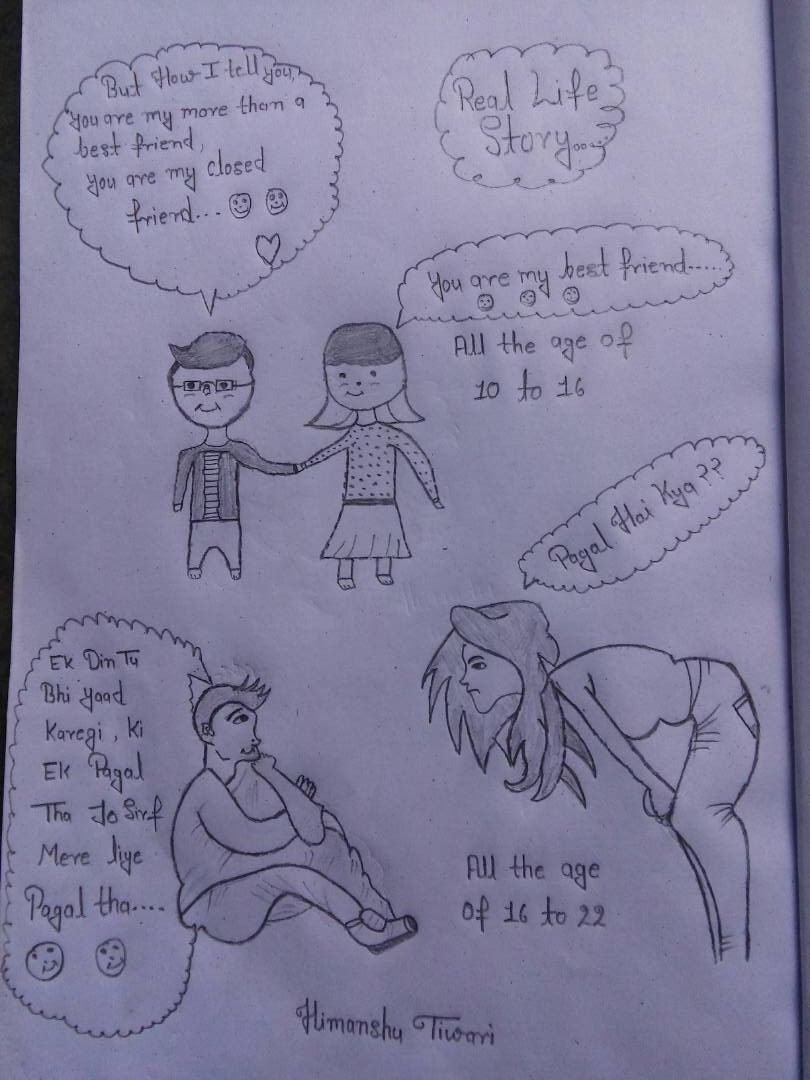 But How I tell you,
You are my more than a
best friend,
You are my closed
friend...
Real Life
Story......
You are my best friend.....
All the age of
10 to 16
Pagal Hai Kya??
Ek Din Tu
Bhi Yaad
Karegi, Ki
Ek Pagal
Tha Jo Sirf
Mere liye
Pagal tha....
All the age
Of 16 to 22
Himanshu Tiwari